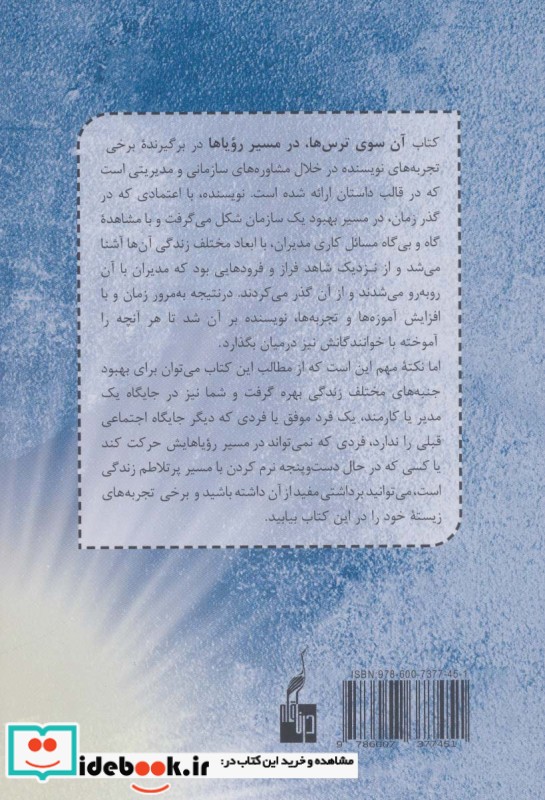 کتاب آن سوی ترس‌ها، در مسیر رؤیاها در برگیرندۀ برخی
تجربه‌های نویسنده در خلال مشاوره‌های سازمانی و مدیریتی است
که در قالب داستان ارائه شده است. نویسنده، با اعتمادی که در
گذر زمان، در مسیر بهبود یک سازمان شکل می‌گرفت و با مشاهدۀ
گاه و بی‌گاه مسائل کاری مدیران، با ابعاد مختلف زندگی آن‌ها آشنا
می‌شد و از نزدیک شاهد فراز و فرودهایی بود که مدیران با آن
روبه‌رو می‌شدند و از آن گذر می‌کردند. درنتیجه به‌مرور زمان و با
افزایش آموزه‌ها و تجربه‌ها، نویسنده بر آن شد تا هر آنچه را
آموخته با خوانندگانش نیز درمیان بگذارد.
اما نکتۀ مهم این است که از مطالب این کتاب می‌توان برای بهبود
جنبه‌های مختلف زندگی بهره گرفت و شما نیز در جایگاه یک
مدیر یا کارمند، یک فرد موفق یا فردی که دیگر جایگاه اجتماعی
قبلی را ندارد، فردی که نمی‌تواند در مسیر رؤیاهایش حرکت کند
یا کسی که در حال دست‌وپنجه نرم کردن با مسیر پرتلاطم زندگی
است، می‌توانید برداشتی مفید از آن داشته باشید و برخی تجربه‌های
زیستۀ خود را در این کتاب بیابید.
ISBN: 978-600-7377-46-
9 786007 377461
مشاهده و خرید این کتاب در:
idebook.ir